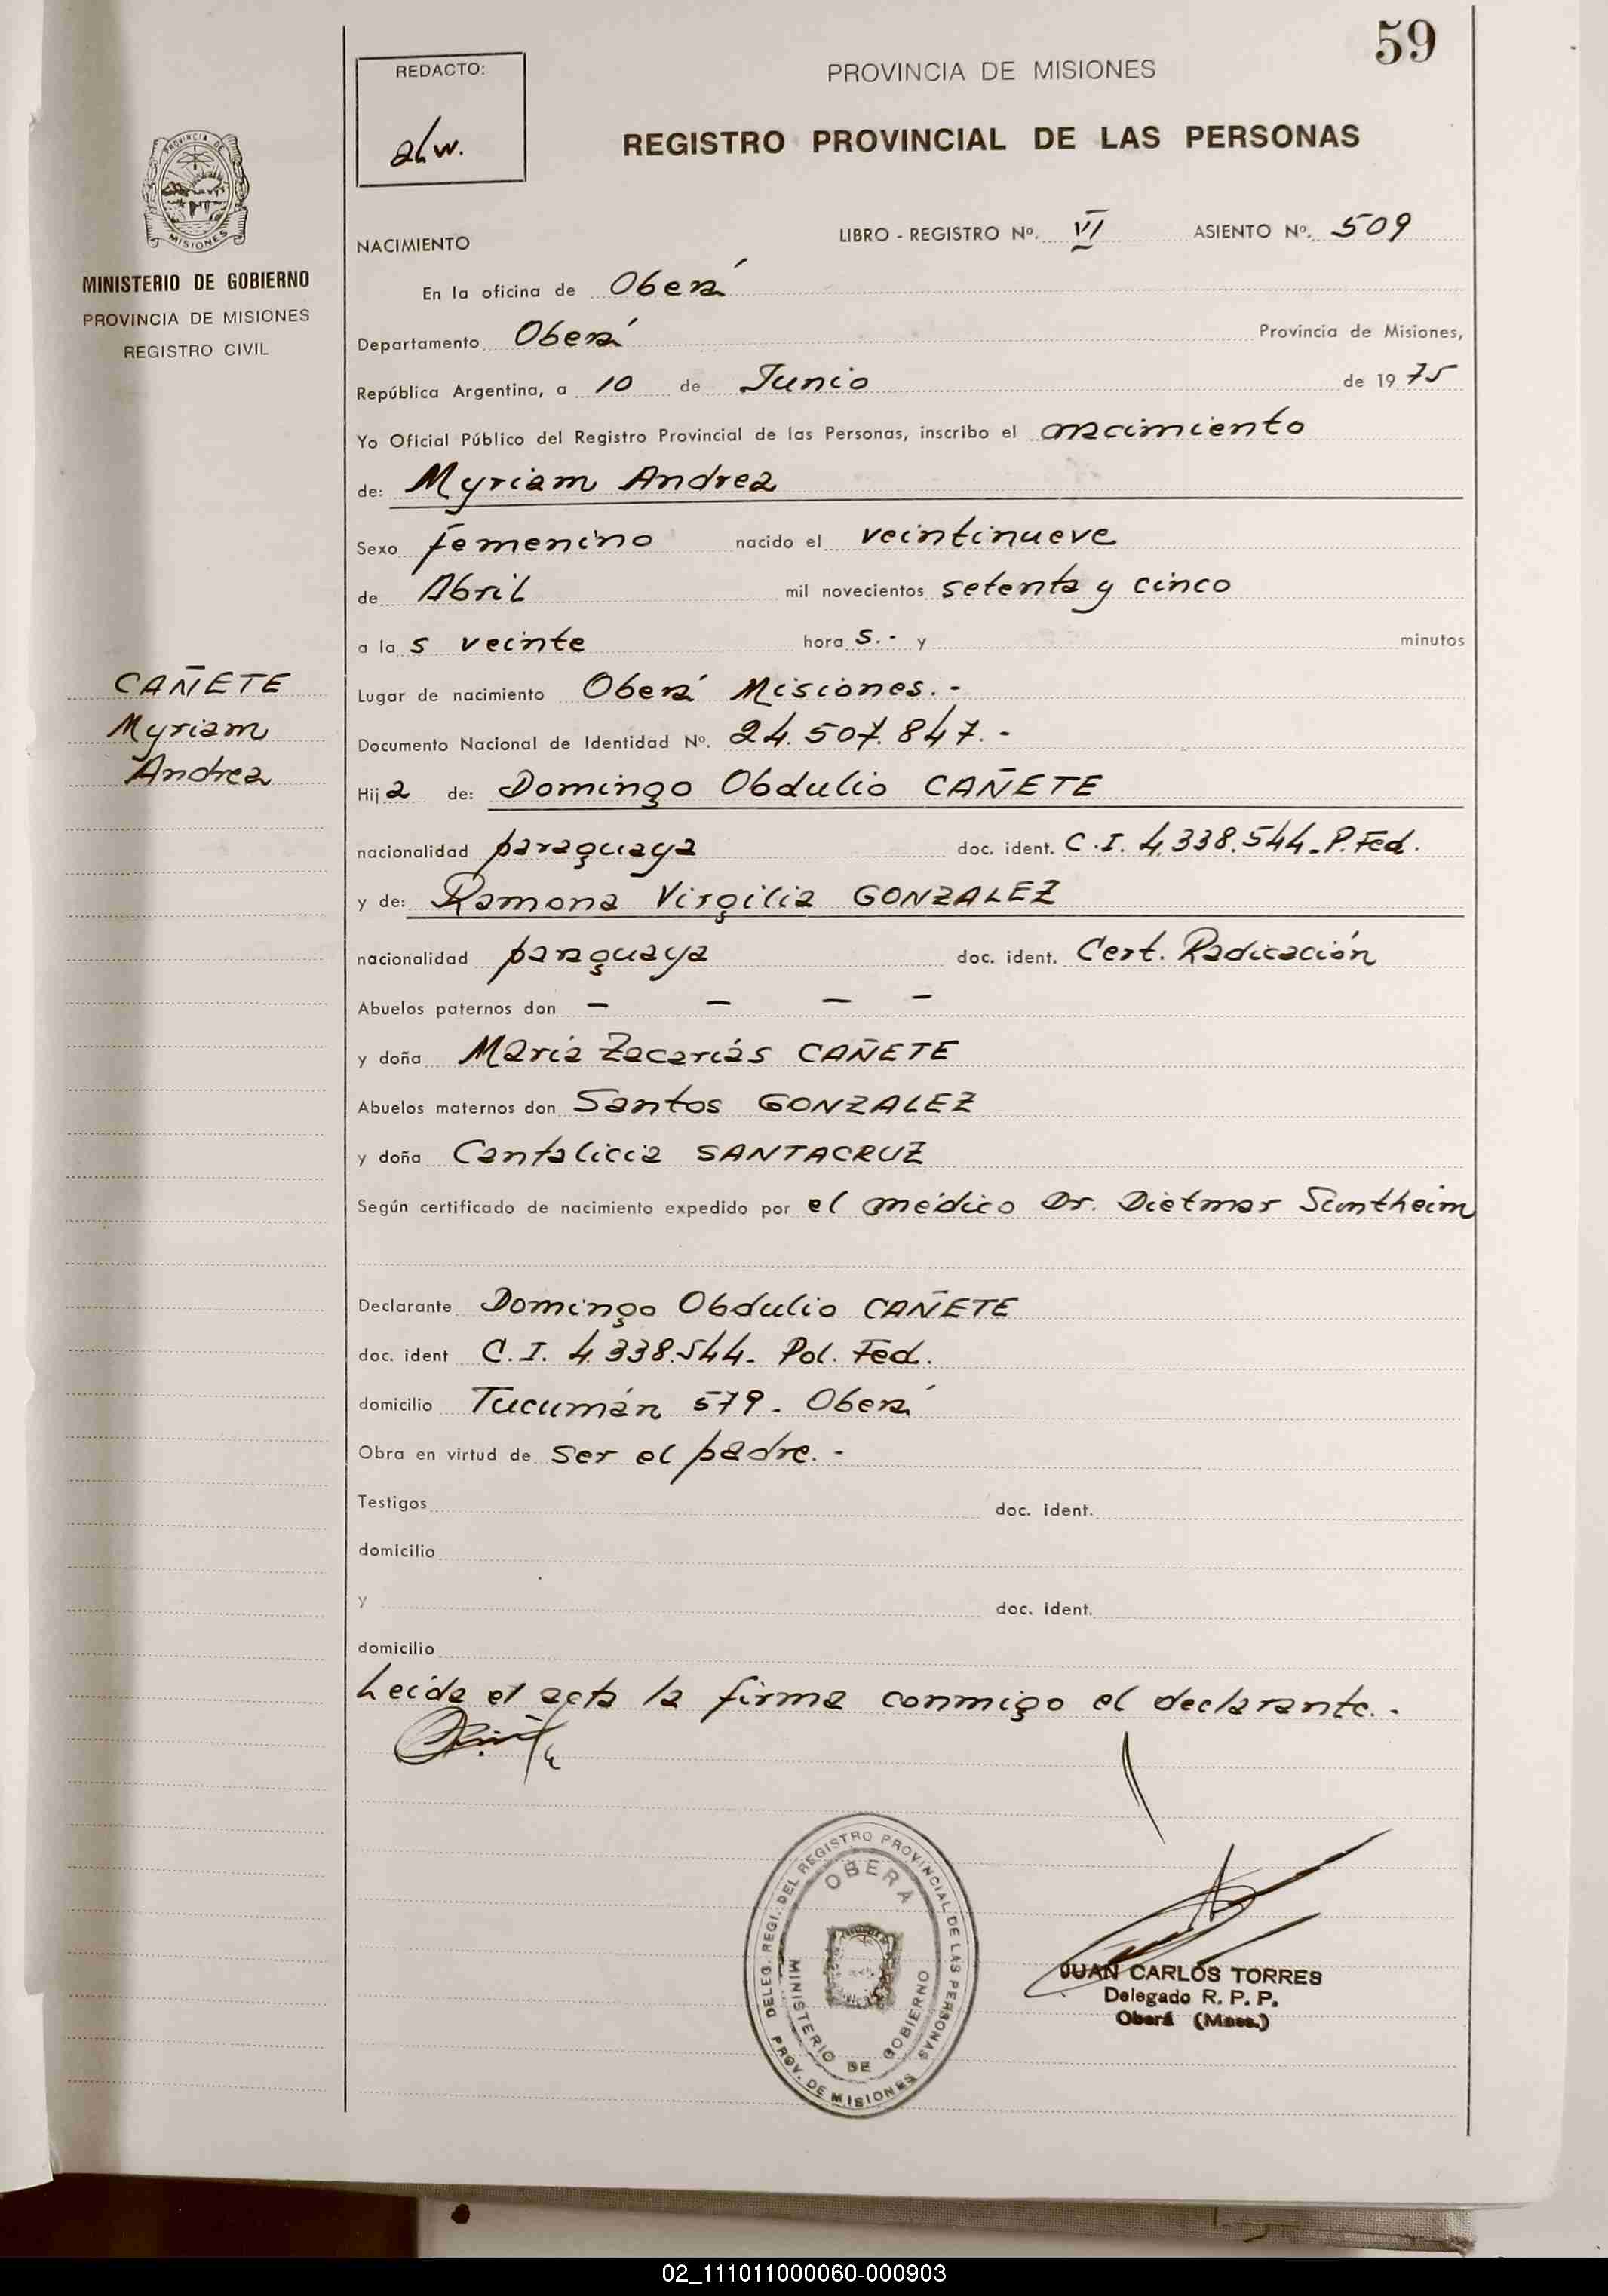 59
REDACTO:
PROVINCIA DE MISIONES
REGISTRO PROVINCIAL DE LAS PERSONAS
PROVINCIA DE
MISIONES
MINISTERIO DE GOBIERNO
PROVINCIA DE MISIONES
REGISTRO CIVIL
NACIMIENTO
LIBRO - REGISTRO Nº. VI ASIENTO Nº. 509
En la oficina de Oberá
Departamento Oberá Provincia de Misiones,
República Argentina, a 10 de Junio de 1975
Yo Oficial Público del Registro Provincial de las Personas, inscribo el nacimiento
de: Myriam Andrea
Sexo femenino nacido el veintinueve
de Abril mil novecientos setenta y cinco
a la s veinte hora s.- y minutos
CAÑETE
Myriam
Andrea
Lugar de nacimiento Oberá Misiones.-
Documento Nacional de Identidad Nº. 24.507.847.-
Hija de: Domingo Obdulio CAÑETE
nacionalidad paraguaya doc. ident. C.I. 4.338.544-P.Fed.
y de: Ramona Virgilia GONZALEZ
nacionalidad paraguaya doc. ident. Cert. Radicación
Abuelos paternos don - - - -
y doña María Zacarías CAÑETE
Abuelos maternos don Santos GONZALEZ
y doña Cantalicia SANTACRUZ
Según certificado de nacimiento expedido por el médico Dr. Dietmar Suntheim
Declarante Domingo Obdulio CAÑETE
doc. ident C.I. 4.338.544- Pol. Fed.
domicilio Tucumán 579- Oberá
Obra en virtud de ser el padre.-
Testigos doc. ident.
domicilio
y doc. ident.
domicilio
Leida el acta la firma conmigo el declarante.-
DELEG. REGI. DEL REGISTRO PROVINCIAL DE LAS PERSONAS
OBERA
MINISTERIO DE GOBIERNO
PROV. DE MISIONES
JUAN CARLOS TORRES
Delegado R. P. P.
Oberá (Mnes.)
02_111011000060-000903